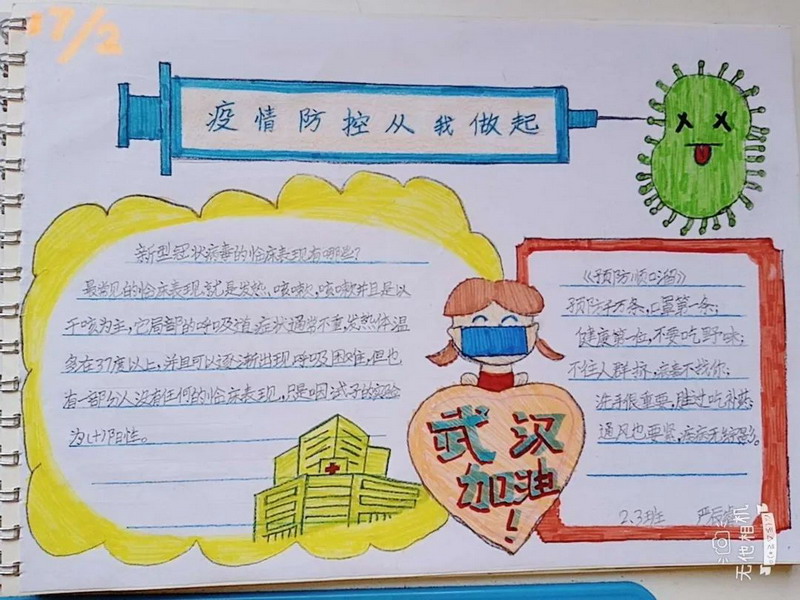 17/2
疫情防控从我做起
新型冠状病毒的临床表现有哪些?
最常见的临床表现就是发热、咳嗽、咳嗽并且是以
干咳为主,它局部的呼吸道症状通常不重,发热体温
多在37度以上,并且可以逐渐出现呼吸困难,但也
有一部分人没有任何的临床表现,只是咽试子的实验
为(+)阳性。
《预防顺口溜》
预防千万条,口罩第一条;
健康第一位,不要吃野味;
不住人群挤,病毒不找你;
洗手很重要,胜过吃补药;
通风也要紧,疾病无踪影。
武汉
加油!
2.3班 严辰
无他相机